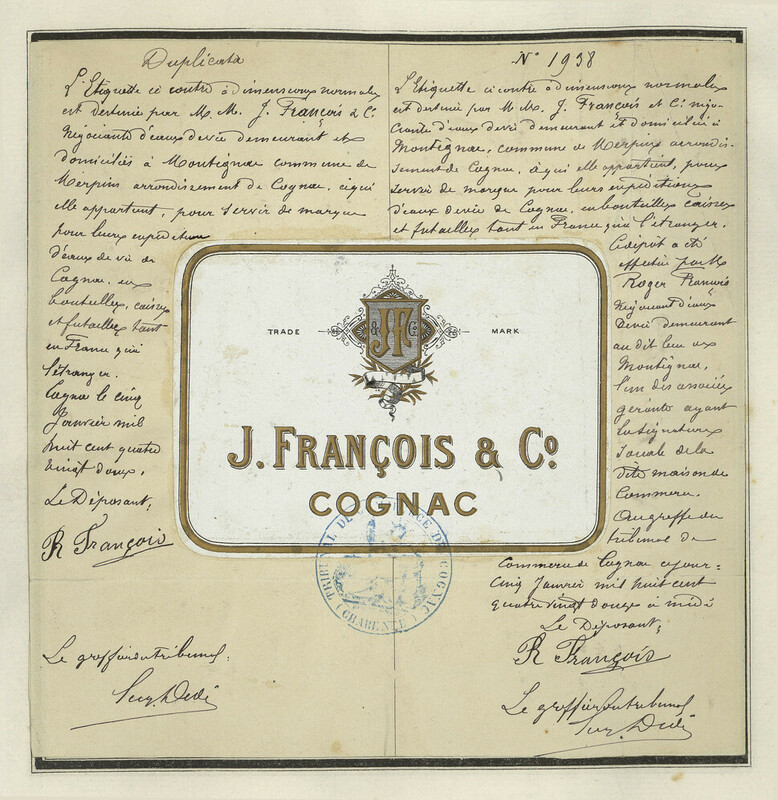 Duplicata
L'Etiquette ci contre à dimensions normales
est destinée par M. M. J. François & Cie
Négociants d'eaux de vie demeurant et
domiciliés à Montignac commune de
Merpins arrondissement de Cognac, à qui
elle appartient, pour servir de marque
pour leurs expéditions
d'eaux de vie de
Cognac, en
bouteilles, caisses
et futailles tant
en France qu'à
l'étranger.
Cognac le cinq
Janvier mil
huit cent quatre
vingt douze.
Le Déposant,
R François
Le greffier du tribunal,
N° 1938
L'Etiquette ci contre à dimensions normales
est destinée par M. M. J. François et Cie négo-
ciants d'eaux de vie demeurant et domiciliés à
Montignac, commune de Merpins arrondis-
sement de Cognac, à qui elle appartient, pour
servir de marque pour leurs expéditions
d'eaux de vie de Cognac, en bouteilles caisses
et futailles tant en France qu'à l'étranger.
Ce dépôt a été
effectué par M
Roger François
négociant d'eaux
de vie demeurant
au dit lieu de
Montignac,
l'un des associés
gérants ayant
la signature
sociale de la
dite maison de
Commerce.
Au greffe du
tribunal de
Commerce de Cognac ce jour=
cinq Janvier mil huit cent
quatre vingt douze à midi
Le Déposant,
R François
Le greffier du tribunal
TRADE MARK
J F
& Co
J. FRANÇOIS & Co
COGNAC
TRIBUNAL DE COMMERCE DE COGNAC
(CHARENTE)